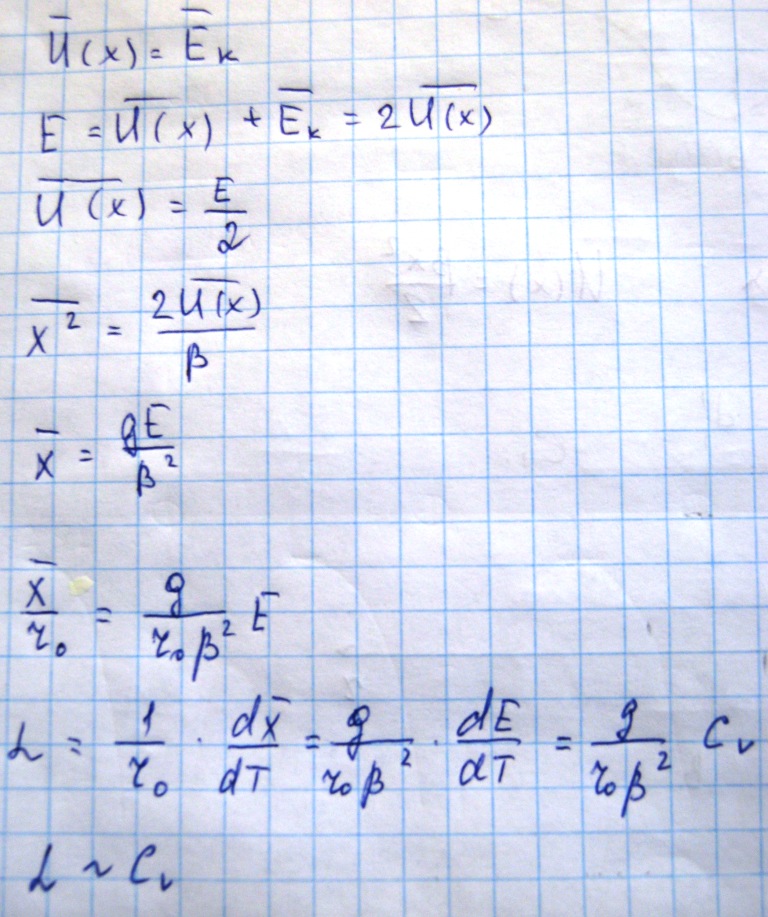 Ū(x) = Ēₖ
E = U̅(̅x̅)̅ + Ēₖ = 2U̅(̅x̅)̅
U̅(̅x̅)̅ = E/2
x̅²̅ = 2U̅(̅x̅)̅/β
x̄ = gE/β²
x̄/r₀ = g/(r₀β²) E
α = 1/r₀ · dx̄/dT = g/(r₀β²) · dE/dT = g/(r₀β²) Cᵥ
α ~ Cᵥ